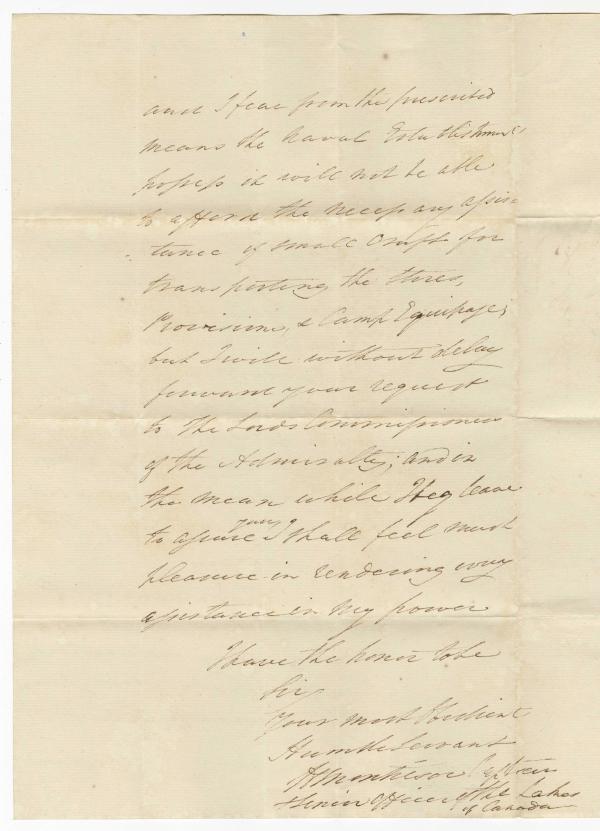 and I fear from the prescribed
means the Naval Establishment
possess it will not be able
to afford the necessary assis-
tance of small Craft for
transporting the Stores,
Provisions, & Camp Equipage;
but I will without delay
forward your request
to The Lords Commissioners
of the Admiralty; and in
the mean while I beg leave
to assure you I shall feel much
pleasure in rendering every
assistance in my power
I have the honor to be
Sir
Your most Obedient
Humble Servant
H Montresor Captain
& Senior Officer of the Lakes
of Canada